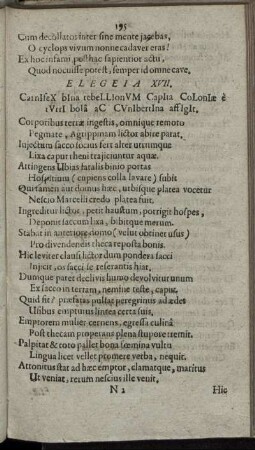 195
Cum decollatos inter sine mente jacebas,
O cyclops vivum nonne cadaver eras?
Ex hoc infami posthac sapientior actu,
Quod nocuisse potest, semper id omne cave.
ELEGEIA XVII.
CarnIfeX bIna rebeLLIonVM CapIta CoLonIæ è
tVrrI bolâ aC CVnIbertIna affIgIt.
Corporibus terræ ingestis, omnique remoto
Pegmate, Agrippinam lictor abire parat.
Injectum sacco socius fert alter utrumque
Lixa caput theni trajiciuntur aquæ.
Attingens Ubias fatalis binio portas
Hospitium (cupiens colla lavare) subit
Quisnam aut domus hæc, urbisque platea vocetur
Nescio Marcelli credo platea fuit.
Ingreditur lictor, petit haustum, porrigit hospes,
Deponit saccum lixa, bibitque merum.
Stabat in anteriore domo (velut obtinet usus)
Pro divendendis theca reposta bonis.
Hic leviter clausi lictor dum pondera sacci
Injicit, os sacci se reserantis hiat,
Dumque paret declivis humo devolvitur unum
Ex sacco in terram, nemine teste, caput.
Quid fit? præfatas pulsat peregrinus ad ædes
Usibus empturus lintea certa suis,
Emptorem mulier cernens, egressa culinâ
Post thecam propetans plena stupore tremit.
Palpitat & toto pallet bona fœmina vultu
Lingua licet vellet promere verba, nequit.
Attonitus stat ad hæc emptor, clamatque, maritus
Ut veniat, rerum nescius ille venit,
N 2 Hic